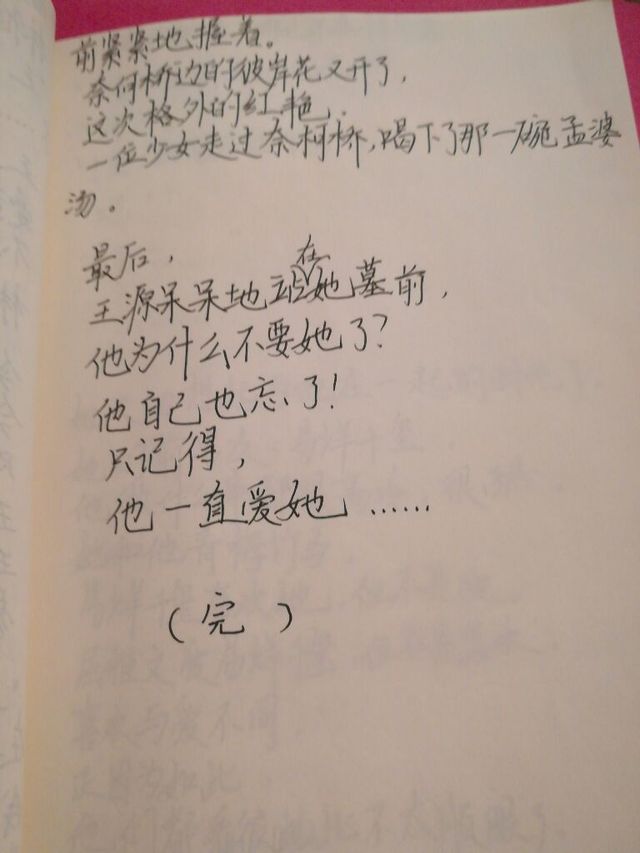 前紧紧地握着。
奈何桥边的彼岸花又开了,
这次格外的红艳,
一位少女走过奈柯桥,喝下了那一碗孟婆
汤。
最后,
王源呆呆地站在她墓前,
他为什么不要她了?
他自己也忘了!
只记得,
他一直爱她……
(完)